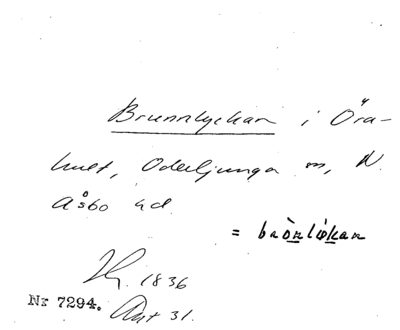 Brunnlyckan i Öra-
hult, Oderljunga sn, N.
Åsbo hd.
= baònlikan
1836
Nr 7294. Ant 31.